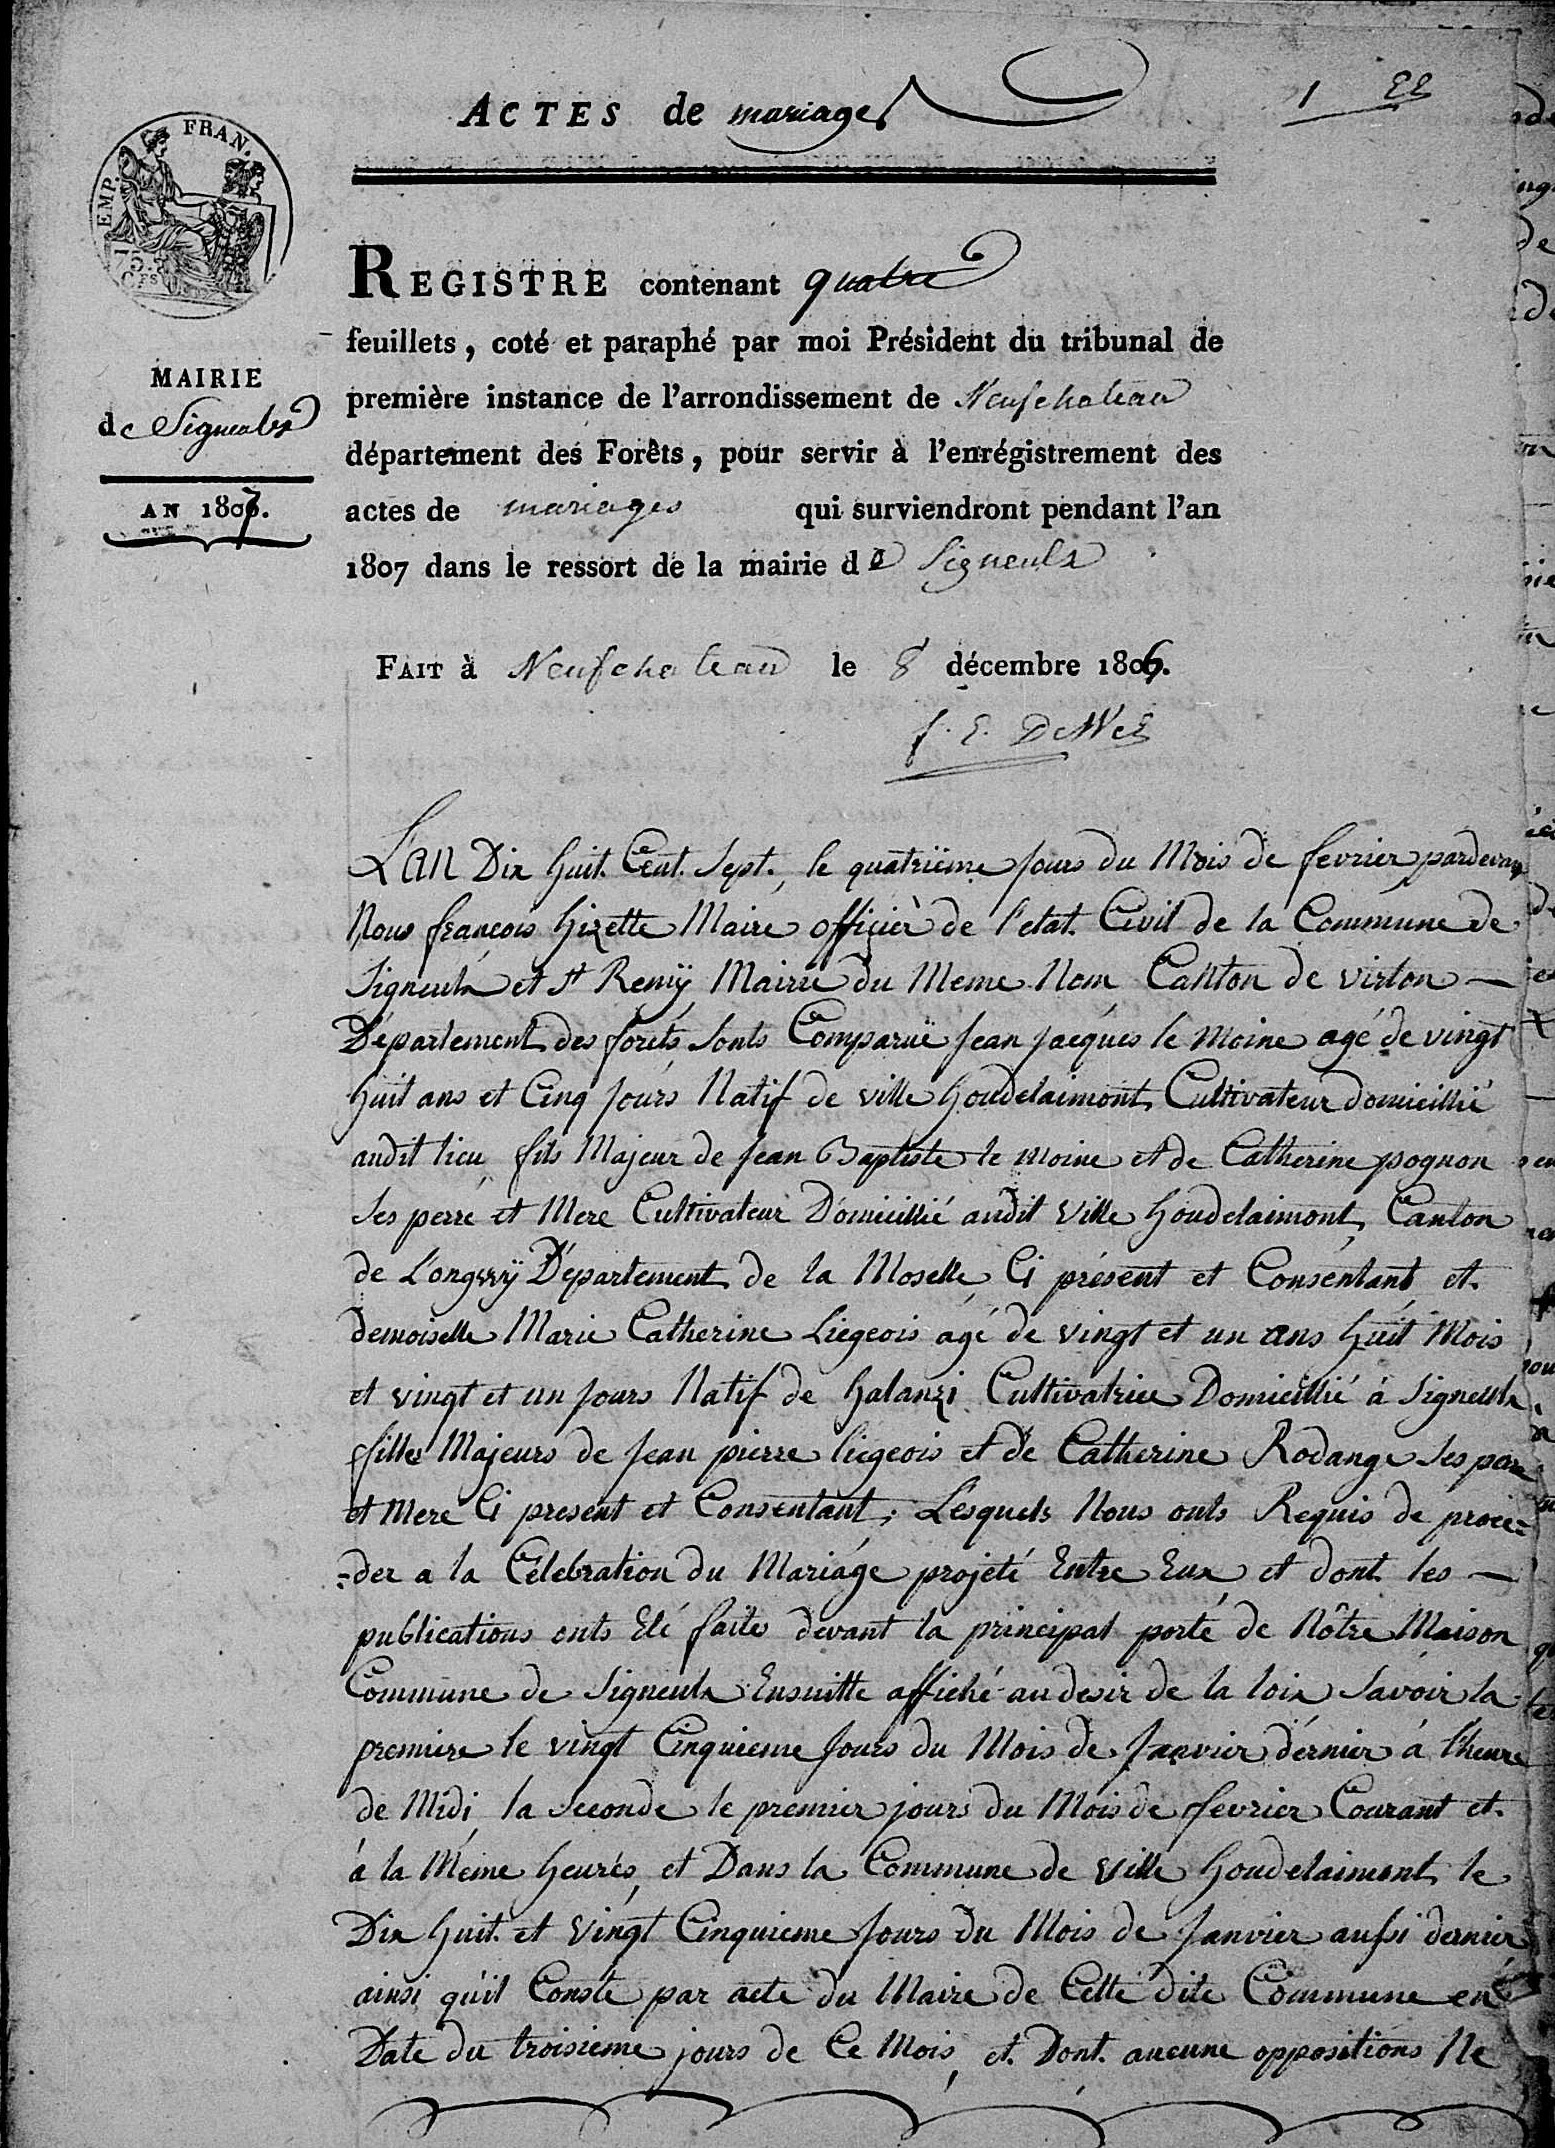 ACTES de mariages
1 EE
EMP. FRAN.
15.
CES
MAIRIE
de Signeulx
AN 1807.
REGISTRE contenant quatre
feuillets, coté et paraphé par moi Président du tribunal de
première instance de l'arrondissement de Neufchateau
département des Forêts, pour servir à l'enrégistrement des
actes de mariages qui surviendront pendant l'an
1807 dans le ressort de la mairie de Signeulx
FAIT à Neufchateau le 8 décembre 1806.
f. E. DeWez
L'an Dix huit Cent Sept, le quatrïéme jours du Mois de fevrier pardevan
Nous françois hizette Maire officièr de l'etat Civil de la Commune de
Signeulx et St Remÿ Mairie du Meme Nom Canton de virton —
Département des foréts sonts Comparuë jean jacques le Moine agé de vingt
huit ans et Cinq jours Natif de ville houdelaimont, Cultivateur domicillié
audit lieu fils Majeur de jean Baptiste le moine et de Catherine pognon
ses perre et Mere Cultivateur Domicillié audit ville houdelaimont, Canton
de Longwÿ Département de la Moselle, Ci présent et Consentant et
demoiselle Marie Catherine Liegeois agé de vingt et un ans huit Mois
et vingt et un jours Natif de halanzi Cultivatrice Domicillié à Signeulx
fille Majeurs de jean pierre liegeois et de Catherine Rodange ses pere
et Mere Ci present et Consentant; Lesquels Nous onts Requis de proce=
=der a la Célebration du Mariage projeté Entre Eux et dont les —
publications onts Eté faites devant la principal porte de Nôtre Maison
Commune de Signeulx Ensuitte affiché au desir de la loix Savoir la
premiere le vingt Cinquieme jours du Mois de janvier dérnier à l'heure
de Midi la Seconde le premier jours du Mois de fevrier Courant et
à la Méme heurés, et Dans la Commune de ville houdelaimont le
Dix huit et vingt Cinquieme jours du Mois de janvier aussi dernier
ainsi qu'il Conste par acte du Maire de Cette dite Commune en
Date du troisieme jours de Ce Mois, et Dont aucune oppositions Ne